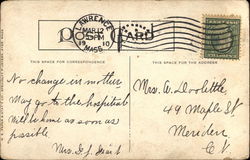 LAWRENCE
MAR 12
5 PM
1910
MASS.
POST CARD
THIS SPACE FOR CORRESPONDENCE
THIS SPACE FOR THE ADDRESS
No change in mother
May go to the hospital
Will be home as soon as
possible
Mrs. D. J.
Mrs. W. Doolittle,
49 Maple St.
Meriden
Ct.